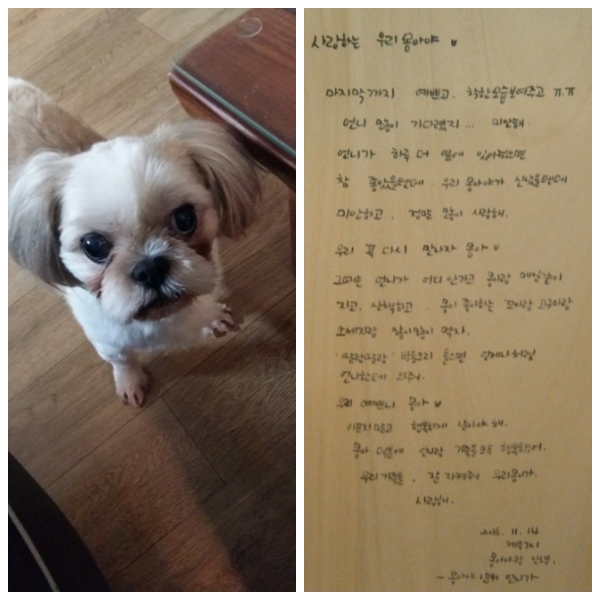 사랑하는 우리 몽아야
마지막까지 예쁘고. 착한모습보여주고 ㅠ.ㅠ
언니 많이 기다렸지... 미안해.
언니가 하루 더 옆에 있어줬으면
참 좋았을텐데. 우리 몽아야가 신났을텐데
미안하고. 정말 많이 사랑해.
우리 꼭 다시 만나자 몽아
그때는 언니가 어디 안가고 몽이랑 매일같이
자고, 산책하고. 몽이 좋아하는 고구마랑
소세지랑 많이많이 먹자.
'딸랑딸랑' 방울소리 들으면 언제나처럼
언니한테 와줘.
우리 예쁘니 몽아
아프지말고 행복하게 살아야 해.
몽아 덕분에 언니랑 가족들 모두 행복했어.
우리가족들. 잘 지켜줘 우리몽이가.
사랑해.
2016. 11. 16
몽아야랑 안녕.
언니가